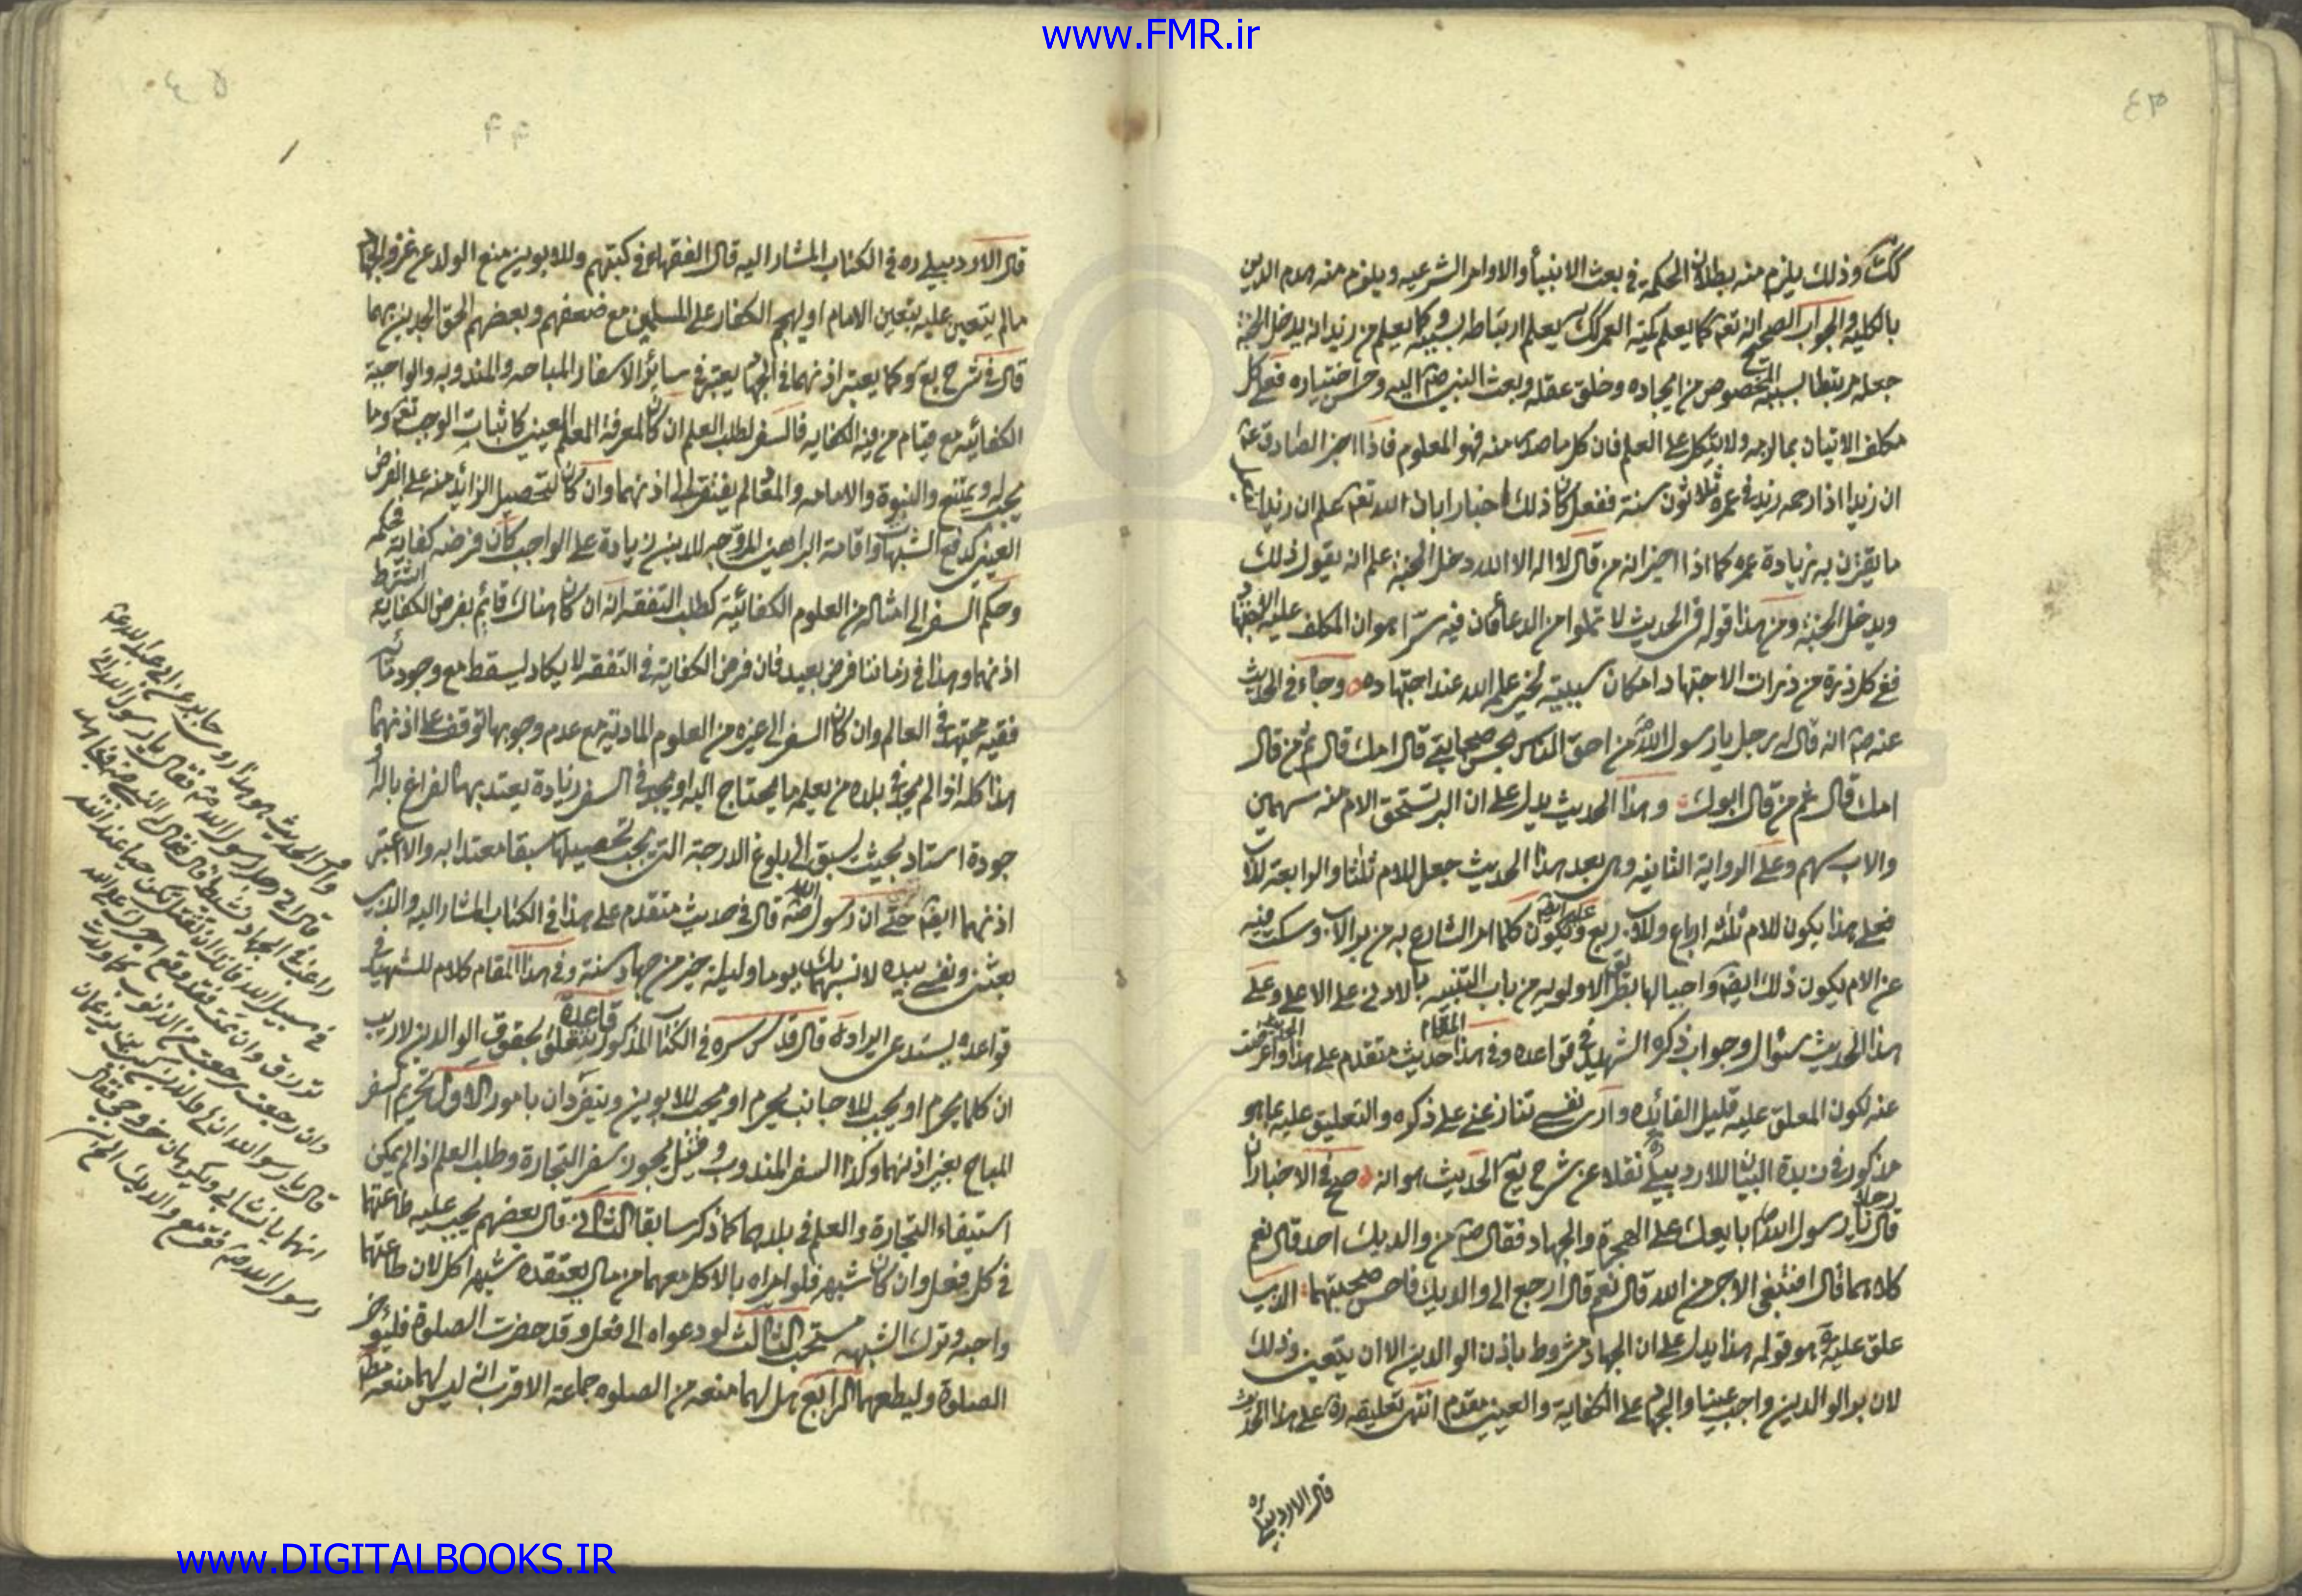 www.FMR.ir
٤٣
كك وذلك يلزم منه بطلان الحكمة في بعث الانبياء والاوامر الشرعيه ويلزم منه هدم الدين
بالكليه والجواب الصحيح انه تعم كما يعلم كمية العمر كك يعلم ارتباطه بسببه وكما يعلم من زيد انه يدخل الجنة
جعله مرتبطا بسببه المخصوص من ايجاده وخلق عقله وبعث النبي صم اليه وحسن اختياره فعلى كل
مكلف الاتيان بما امر به ولا يتكل على العلم فان كل ما صدر منه فهو المعلوم فاذا اخبر الصادق ع
ان زيدا اذا رحمه زيد في عمره ثلاثون سنة ففعل كان ذلك اخبارا بان الله تعم علم ان زيدا يفعل
ما يقترن به زيادة عمره كما اذا اخبر انه من قال لا اله الا الله دخل الجنة علم انه يقول ذلك
ويدخل الجنة ومن هذا قوله في الحديث لا تملوا من الدعاء فان فيه سرا هو ان المكلف عليه الاجتهاد
ففي كل ذرة من ذرات الاجتهاد امكان سببيته لخير علمه الله عند اجتهاده وجاء في الحديث
عنه صم انه قال له رجل يا رسول الله من احق الناس بحسن صحابتي قال امك قال ثم من قال
امك قال ثم من قال ابوك وهذا الحديث يدل على ان البر تستحق الام منه سهمين
والاب سهم وعلى الرواية الثانيه وهي بعد هذا الحديث جعل للام ثلثا والرابعة للاب
فعلى هذا يكون للام ثلثه ارباع وللاب ربع ويكون كلما امر الشارع به من بر الاب وسكت فيه
عن الام يكون ذلك ايضا واجبا لها بطريق الاولويه من باب التنبيه بالادنى على الاعلى وعلى
هذا الحديث سؤال وجواب ذكره الشهيد في قواعده وفي هذا المقام حديث متقدم على هذا واعرضت
عنه لكون المعلق عليه قليل الفائده وارى نفسي تنازعني على ذكره والتعليق عليه بما هو
مذكور في زبدة البيان للاردبيلي نقلا عن شرح يع الحديث هو انه صح في الاخبار ان
رجلا قال يا رسول الله ابايعك على الهجرة والجهاد فقال صم من والديك احد قال نعم
كلاهما قال افتبتغى الاجر من الله قال نعم قال ارجع الى والديك فاحسن صحبتهما الذي
علق عليه ره هو قوله هذا يدل على ان الجهاد مشروط باذن الوالدين الا ان يتعين وذلك
لان بر الوالدين واجب عينا والجهاد على الكفاية والعيني مقدم انتهى تعليقه ره على هذا الحديث
قال الاردبيلي ره
قال الاردبيلي ره في الكتاب المشار اليه قال الفقهاء في كتبهم وللابوين منع الولد عن غزو الجهاد
مالم يتعين عليه بتعيين الامام او لهجم الكفار على المسلمين مع ضعفهم وبعضهم الحق الجدين بهما
قال في شرح يع وكما يعتبر اذنهما في الجهاد يعتبر في سائر الاسفار المباحه والمندوبه والواجبة
الكفائيه مع قيام من فيه الكفايه فالسفر لطلب العلم ان كان لمعرفة العلم العيني كاثبات الواجب تعم وما
يجب له ويمتنع والنبوة والامامه والمعاد لم يفتقر الى اذنهما وان كان لتحصيل الزائد منه على الفرض
العيني كدفع الشبهات واقامة البراهين المروجه للدين زيادة على الواجب كان فرضه كفاية فحكمه
وحكم السفر الى امثاله من العلوم الكفائية كطلب التفقه انه ان كان هناك قائم بفرض الكفاية اشترط
اذنهما وهذا في زماننا فرض بعيد فان فرض الكفاية في التفقه لا يكاد يسقط مع وجود مائه
فقيه مجتهد في العالم وان كان السفر الى غيره من العلوم المادية مع عدم وجوبها توقف على اذنهما
هذا كله اذا لم يجد في بلده من يعلمه ما يحتاج اليه او يجد في السفر زيادة يعتد بها لفراغ بال او
جودة استاد بحيث يسبق الى بلوغ الدرجة التي يجب تحصيلها سبقا معتدا به والا اعتبر
اذنهما ايضا حتى ان رسول الله صم قال في حديث متقدم على هذا في الكتاب المشار اليه والذي
بعثني ونفسي بيده لانسهما بك يوما وليلة خير من جهاد سنة وفي هذا المقام كلام للشهيد في
قواعده يستدعي ايراده قال قدس سره في الكتاب المذكور قاعدة تتعلق بحقوق الوالدين لا ريب
ان كلما يحرم او يجب للاجانب يحرم او يجب للابوين ويتفردان بامور الاول تحريم السفر
المباح بغير اذنهما وكذا السفر المندوب وقيل يجوز سفر التجارة وطلب العلم اذا لم يمكن
استيفاء التجارة والعلم في بلدهما كما ذكر سابقا الثاني قال بعضهم يجب عليه طاعتهما
في كل فعل وان كان شبهه فلو امراه بالاكل معهما من مال يعتقده شبهه اكل لان طاعتهما
واجبه وترك الشبهه مستحب الثالث لو دعواه الى فعل وقد حضرت الصلوة فليؤخر
الصلوة وليطعهما الرابع هل لهما منعه من الصلوه جماعة الاقرب انه ليس لهما منعه مطلقا
قال اتى رجل رسول الله صم فقال يا رسول الله اني
راغب في الجهاد نشيط قال فقال النبي صم فجاهد
في سبيل الله فانك ان تقتل تكن حيا عند الله
ترزق وان تمت فقد وقع اجرك على الله
وان رجعت رجعت من الذنوب كما ولدت
قال يا رسول الله ان لي والدين كبيرين يزعمان
انهما يانسان بي ويكرهان خروجي فقال
رسول الله صم فقر مع والديك الخ
www.DIGITALBOOKS.IR